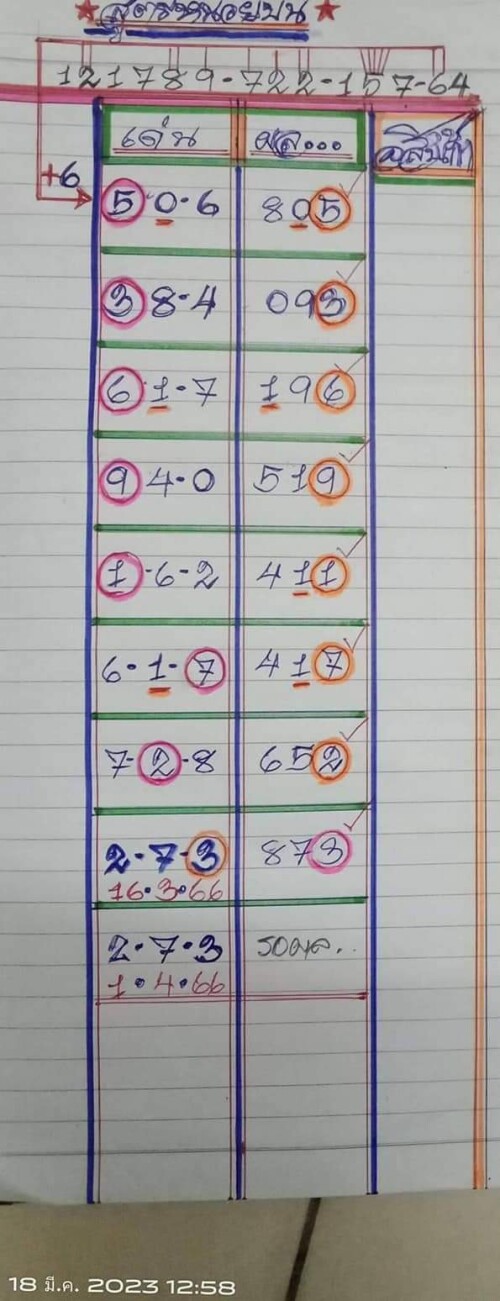 สูตรหน่วยบน
121789-722-157-64
เด่น ผล...
+6
5·0·6 805
3 8·4 093
6·1·7 196
9 4·0 519
1·6-2 411
6·1·7 417
7·2·8 652
2·7·3 873
16·3·66
2·7·3 รอผล..
1·4·66
18 มี.ค. 2023 12:58